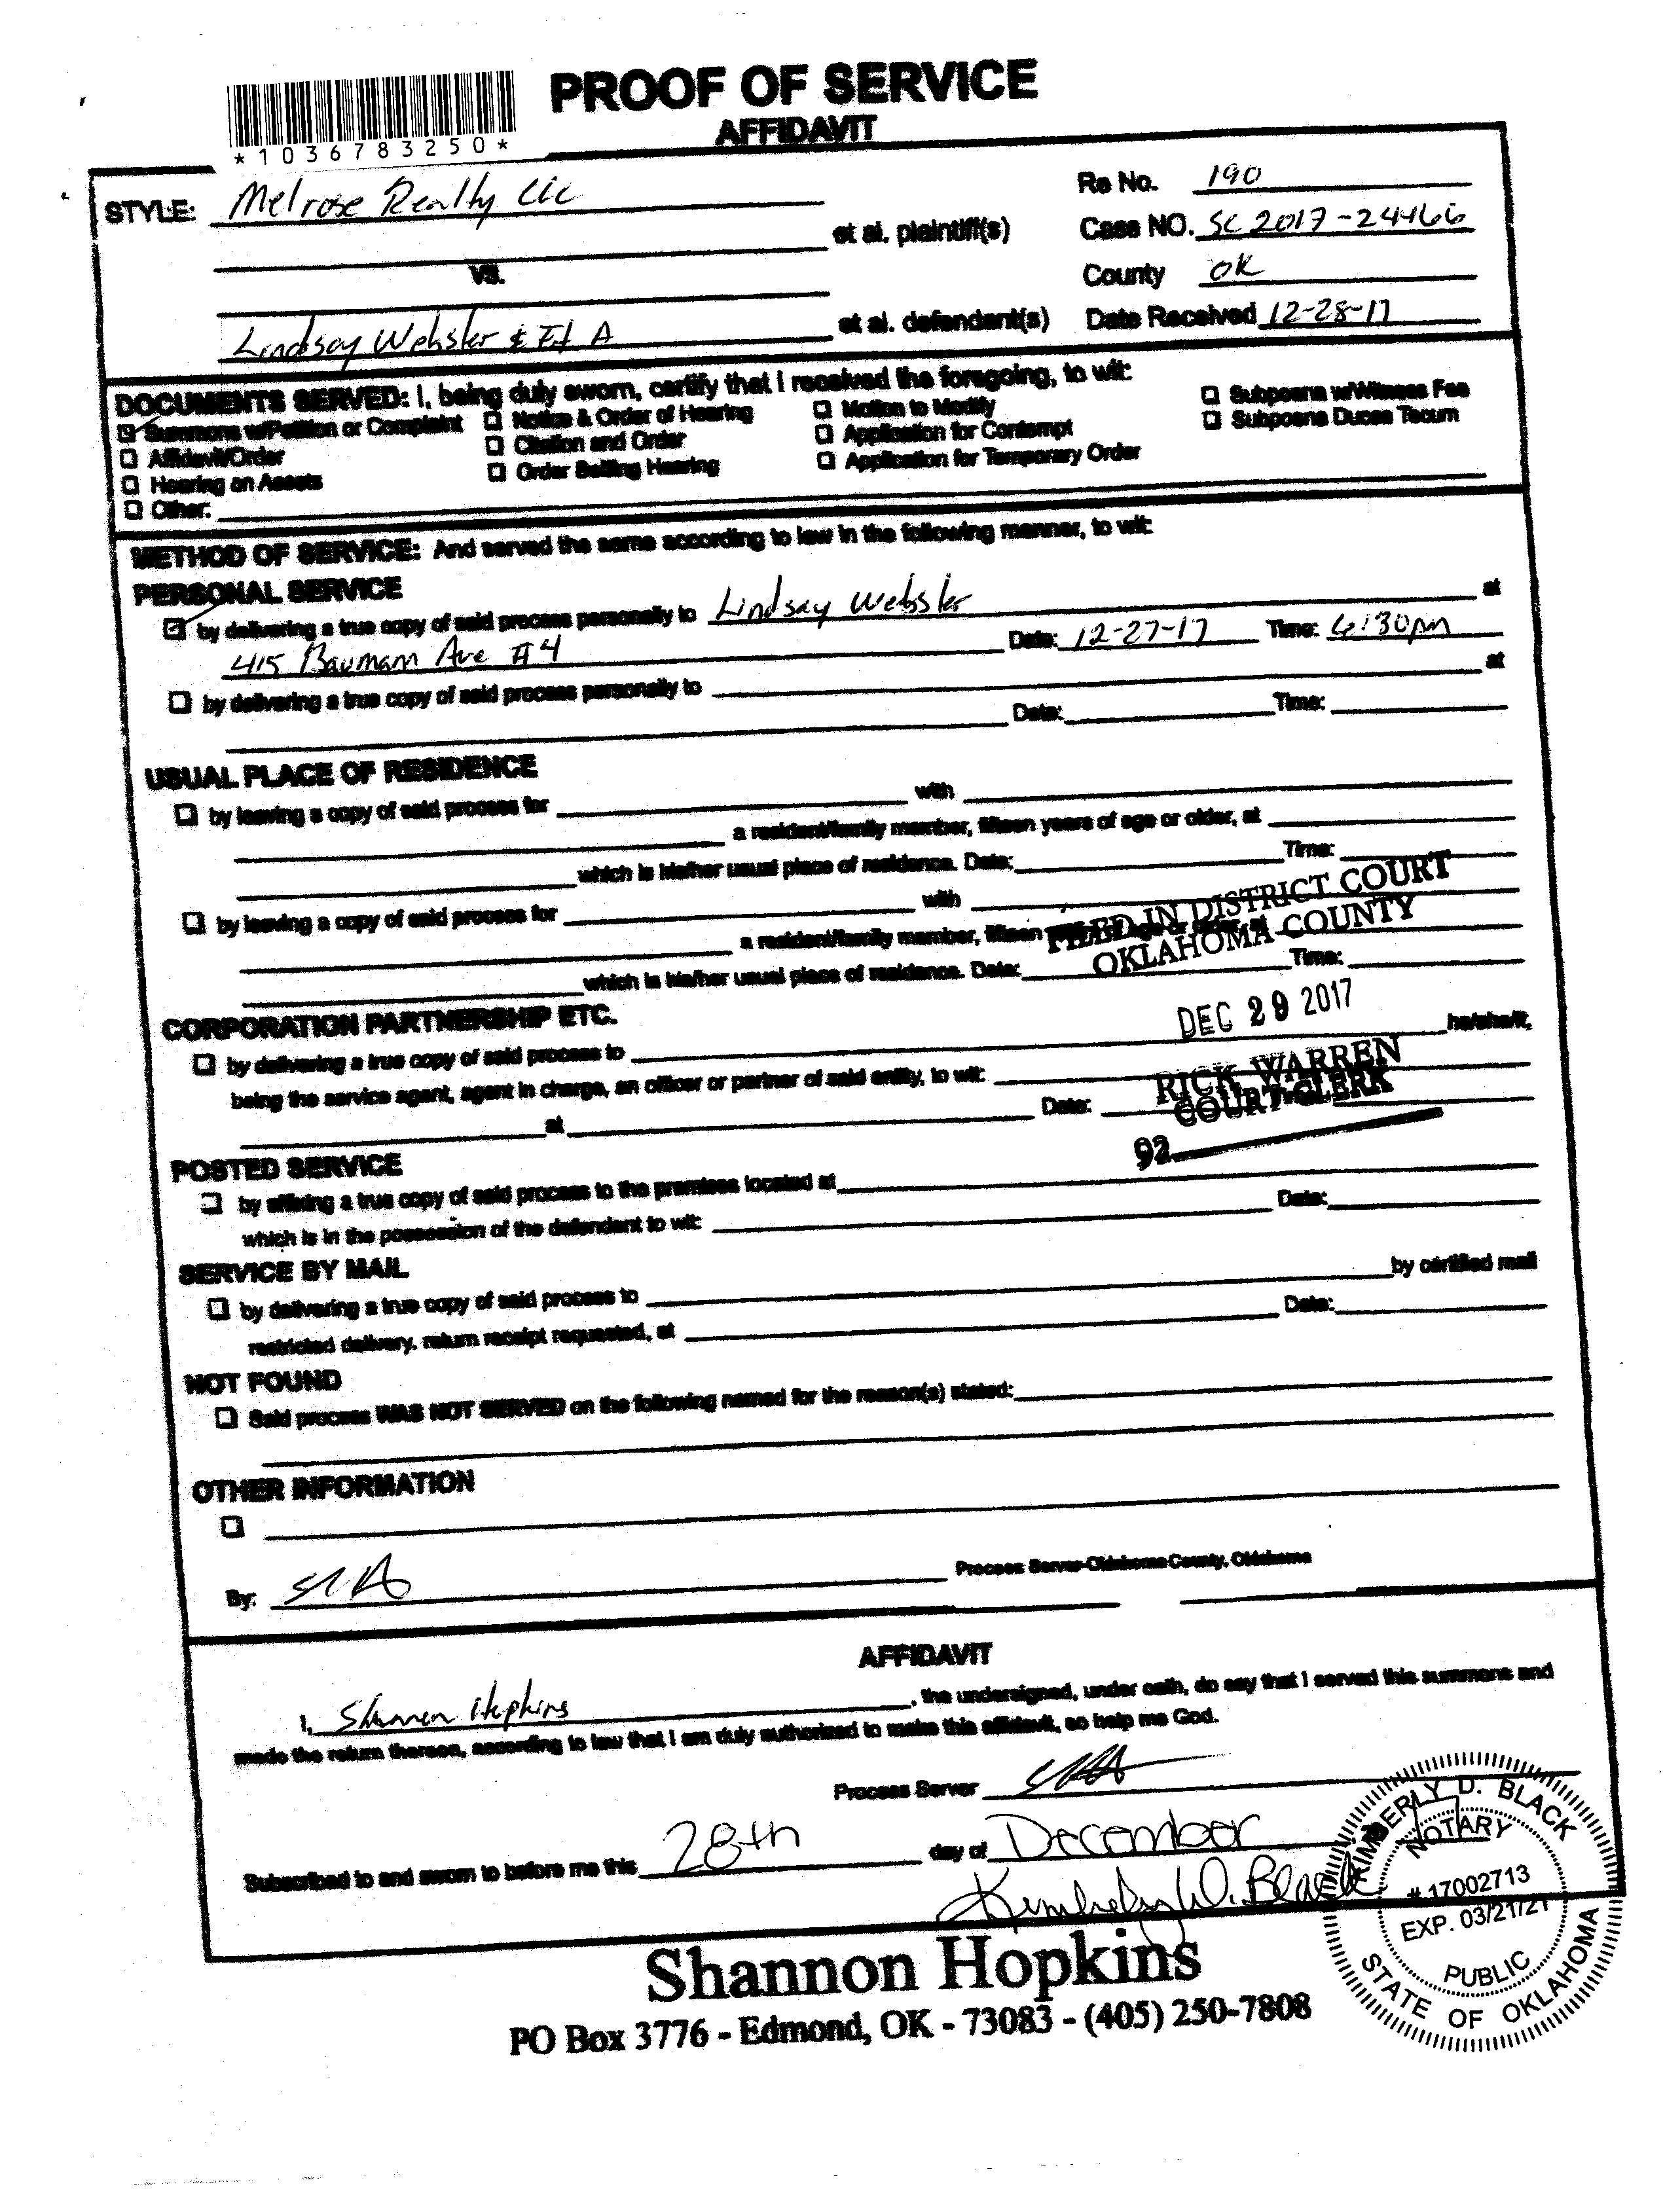 PROOF OF SERVICE
AFFIDAVIT
*1036783250*
STYLE: Melrose Realty LLC
Re No. 190
et al. plaintiff(s)
Case NO. SC 2017-24466
VS.
County OK
Lindsay Webster & Et A
et al. defendant(s)
Date Received 12-28-17
DOCUMENTS SERVED: I, being duly sworn, certify that I received the foregoing, to wit:
Summons w/Petition or Complaint
Notice & Order of Hearing
Motion to Modify
Subpoena w/Witness Fee
Affidavit/Order
Citation and Order
Application for Contempt
Subpoena Duces Tecum
Hearing on Assets
Order Setting Hearing
Application for Temporary Order
Other:
METHOD OF SERVICE: And served the same according to law in the following manner, to wit:
PERSONAL SERVICE
by delivering a true copy of said process personally to Lindsay Webster at
415 Baumann Ave #4 Date: 12-27-17 Time: 6:30pm
by delivering a true copy of said process personally to at
Date: Time:
USUAL PLACE OF RESIDENCE
by leaving a copy of said process for with
a resident/family member, fifteen years of age or older, at
which is his/her usual place of residence. Date: Time:
by leaving a copy of said process for with
a resident/family member, fifteen years of age or older, at
which is his/her usual place of residence. Date: Time:
FILED IN DISTRICT COURT
OKLAHOMA COUNTY
DEC 29 2017
RICK WARREN
COURT CLERK
92
CORPORATION PARTNERSHIP ETC.
by delivering a true copy of said process to he/she/it,
being the service agent, agent in charge, an officer or partner of said entity, to wit:
at Date: Time:
POSTED SERVICE
by affixing a true copy of said process to the premises located at
which is in the possession of the defendant to wit: Date:
SERVICE BY MAIL
by delivering a true copy of said process to by certified mail
restricted delivery, return receipt requested, at Date:
NOT FOUND
Said process WAS NOT SERVED on the following named for the reason(s) stated:
OTHER INFORMATION
By: Process Server-Oklahoma County, Oklahoma
AFFIDAVIT
I, Shannon Hopkins, the undersigned, under oath, do say that I served this summons and
made the return thereon, according to law that I am duly authorized to make this affidavit, so help me God.
Process Server
Subscribed to and sworn to before me this 28th day of December
Kimberly D. Black
KIMBERLY D. BLACK
NOTARY
# 17002713
EXP. 03/21/21
PUBLIC
STATE OF OKLAHOMA
Shannon Hopkins
PO Box 3776 - Edmond, OK - 73083 - (405) 250-7808